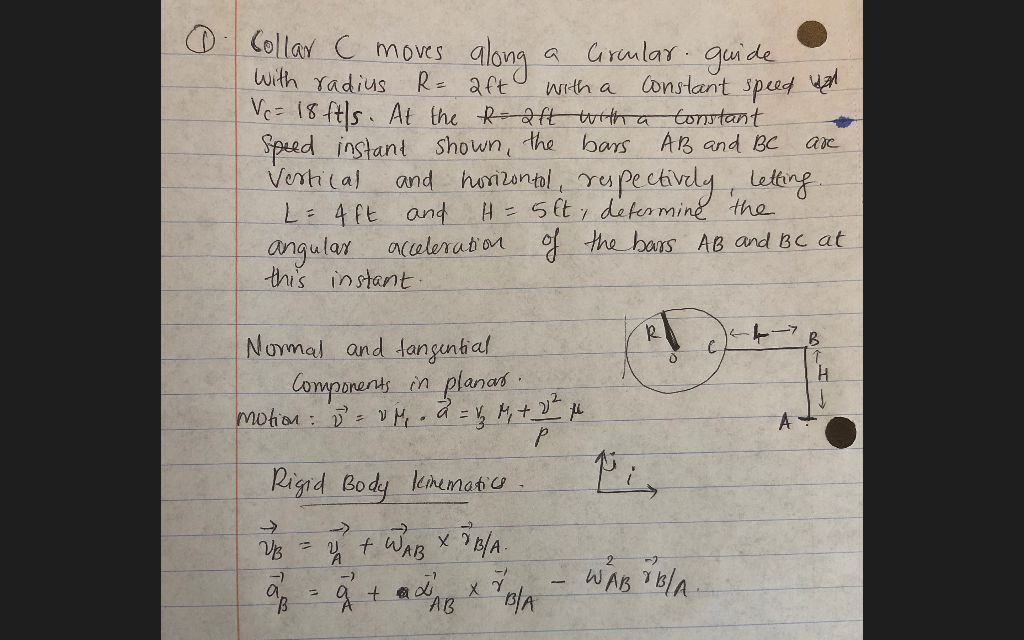 ① Collar C moves along a Circular guide
with radius R = 2ft with a Constant speed
Vc = 18 ft/s. At the R = 2ft with a Constant
Speed instant shown, the bars AB and BC are
Vertical and horizontol, respectively, letting
L = 4ft and H = 5ft, determine the
angular acceleration of the bars AB and BC at
this instant.
R
O
C
← L →
B
↑
H
↓
A
Normal and tangential
Components in planar.
motion :
j
i
Rigid Body kinematics.
v⃗_B = v⃗_A + ω⃗_AB × r⃗_B/A.
a⃗_B = a⃗_A + α⃗_AB × r⃗_B/A − ω²_AB r⃗_B/A.